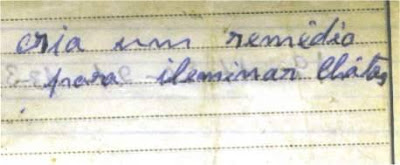 cria um remédio
para ileminar llátas